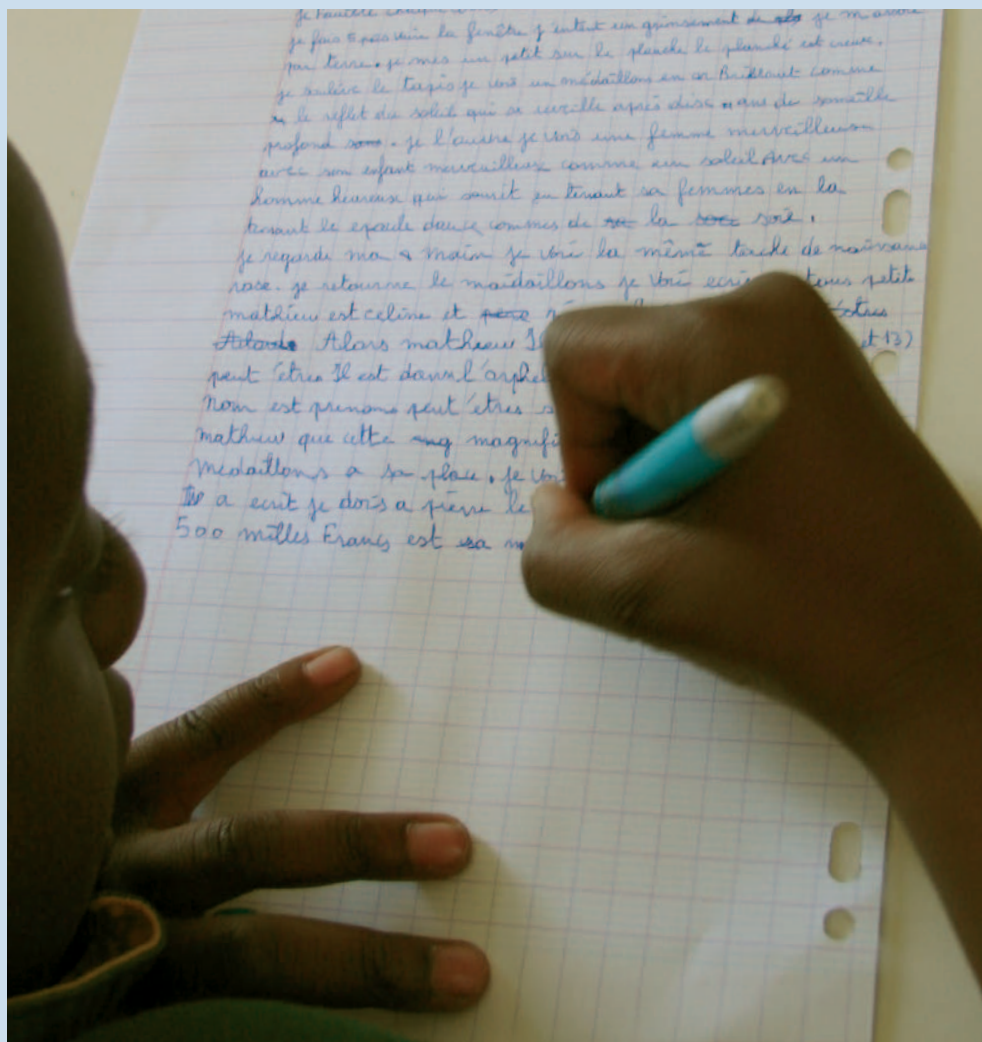 je fais pas vers la fenêtre j'entent un grinsement de je
par terre. je mes un petit sur la planche le planché est creuse.
je soulève le tapis je vois un médaillons en or Brillant comme
le réflet du soleil qui se rveille après disc ans de someille
profond. je l'ouvre je vois une femme merveilleuse
avec son enfant merveilleux comme un soleil Avec un
homme heureux qui sourit en tenant sa femmes en la
tenant le epaule douce commes de la soie.
je regarde ma main je voi la même tache de naissance
rose. je retourne le maidaillons je voi ecrie petit
mathieu est celine et père
Alors mathieu Il et 13)
peut êtres Il est dans l'orphe
Nom est prenoms peut êtres s
mathieu que cette magnifi
medaillons a sa place. je voi
a ecrit je dois a pierre le
500 milles Francs est sa